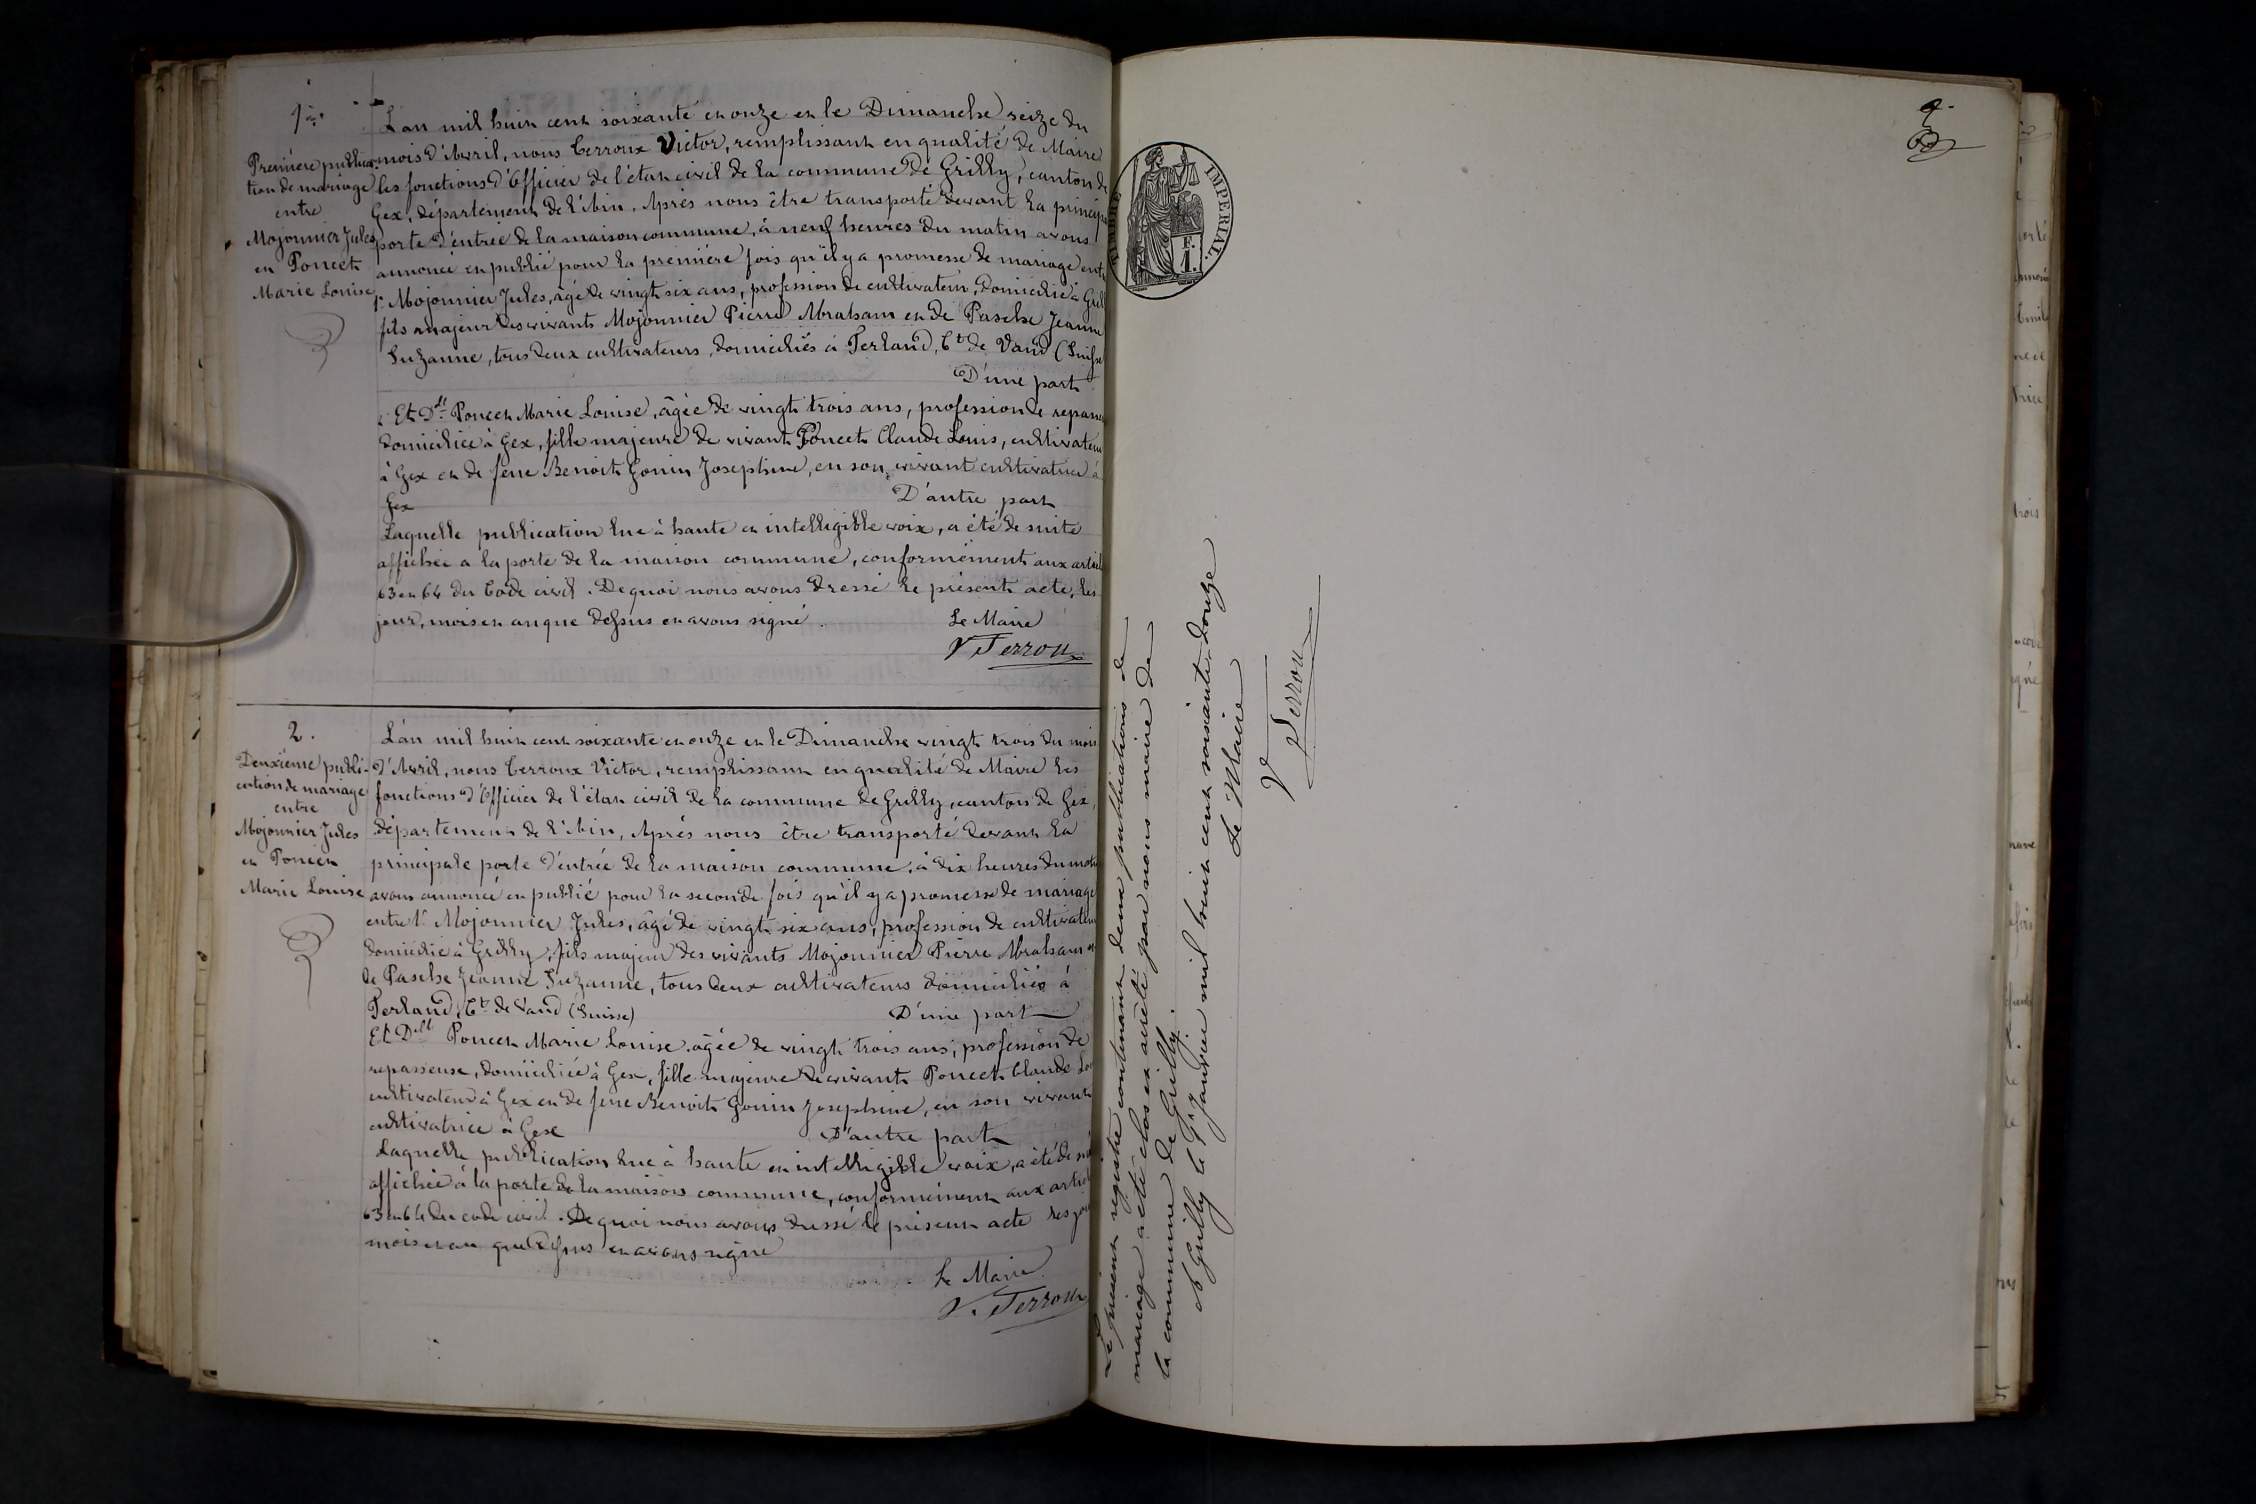 1er.
Première publica-
tion de mariage
entre
Mojonnier Jules
et Poncet
Marie Louise
L'an mil huit cent soixante et onze et le Dimanche seize du
mois d'Avril, nous Terroux Victor, remplissant en qualité de Maire
les fonctions d'Officier de l'état civil de la commune de Grilly, canton de
Gex, département de l'Ain. Après nous être transporté devant la principa
porte d'entrée de la maison commune, à neuf heures du matin avons
annoncé et publié pour la première fois qu'il y a promesse de mariage ent
1° Mojonnier Jules, âgé de vingt six ans, profession de cultivateur, domicilié à Gril
fils majeur des vivants Mojonnier Pierre Abraham et de Pasche Jeanne
Suzanne, tous deux cultivateurs, domiciliés à Perland, Ct de Vaud (Suisse
D'une part
Et Dlle Poncet Marie Louise, âgée de vingt trois ans, profession de repasseu
domiciliée à Gex, fille majeure de vivant Poncet Claude Louis, cultivateur
à Gex et de feue Benoit Gonin Josephine, en son vivant cultivatrice à
Gex D'autre part
Laquelle publication lue à haute et intelligible voix, a été de suite
affichée a la porte de la maison commune, conformément aux articl
63 et 64 du Code civil. De quoi nous avons dressé le présent acte, les
jour, mois et an que dessus et avons signé.
Le Maire
V Terroux
2.
Deuxième publi-
cation de mariage
entre
Mojonnier Jules
et Poncet
Marie Louise
L'an mil huit cent soixante et onze et le Dimanche vingt trois du mois
d'Avril, nous Terroux Victor, remplissant en qualité de Maire les
fonctions d'Officier de l'état civil de la commune de Grilly, canton de Gex,
département de l'Ain, Après nous être transporté devant la
principale porte d'entrée de la maison commune, à dix heures du mat
avons annoncé et publié pour la seconde fois qu'il y a promesse de mariage
entre 1° Mojonnier Jules, âgé de vingt six ans, profession de cultivateur
domicilié à Grilly, fils majeur des vivants Mojonnier Pierre Abraham et
de Pasche Jeanne Suzanne, tous deux cultivateurs domiciliés à
Perland, Ct de Vaud (Suisse) D'une part
Et Dlle Poncet Marie Louise âgée de vingt trois ans, profession de
repasseuse, domiciliée à Gex, fille majeure de vivant Poncet Claude Lou
cultivateur à Gex et de feue Benoit Gonin Josephine, en son vivant
cultivatrice à Gex D'autre part
Laquelle publication lue à haute et intelligible voix, a été de sui
affichée à la porte de la maison commune, conformément aux articl
63 et 64 du code civil. De quoi nous avons dressé le présent acte les jour
mois et an que dessus et avons signé
Le Maire
V. Terroux
TIMBRE IMPERIAL.
F.
1.
Le présent registre contenant deux publications de
mariage a été clos et arrêté par nous maire de
la commune de Grilly.
A Grilly le 1er Janvier mil huit cent soixante-douze
Le Maire
V Terroux